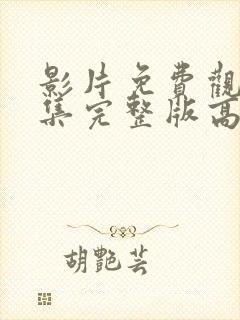 影片免費觀
集完整版高
胡艷芸